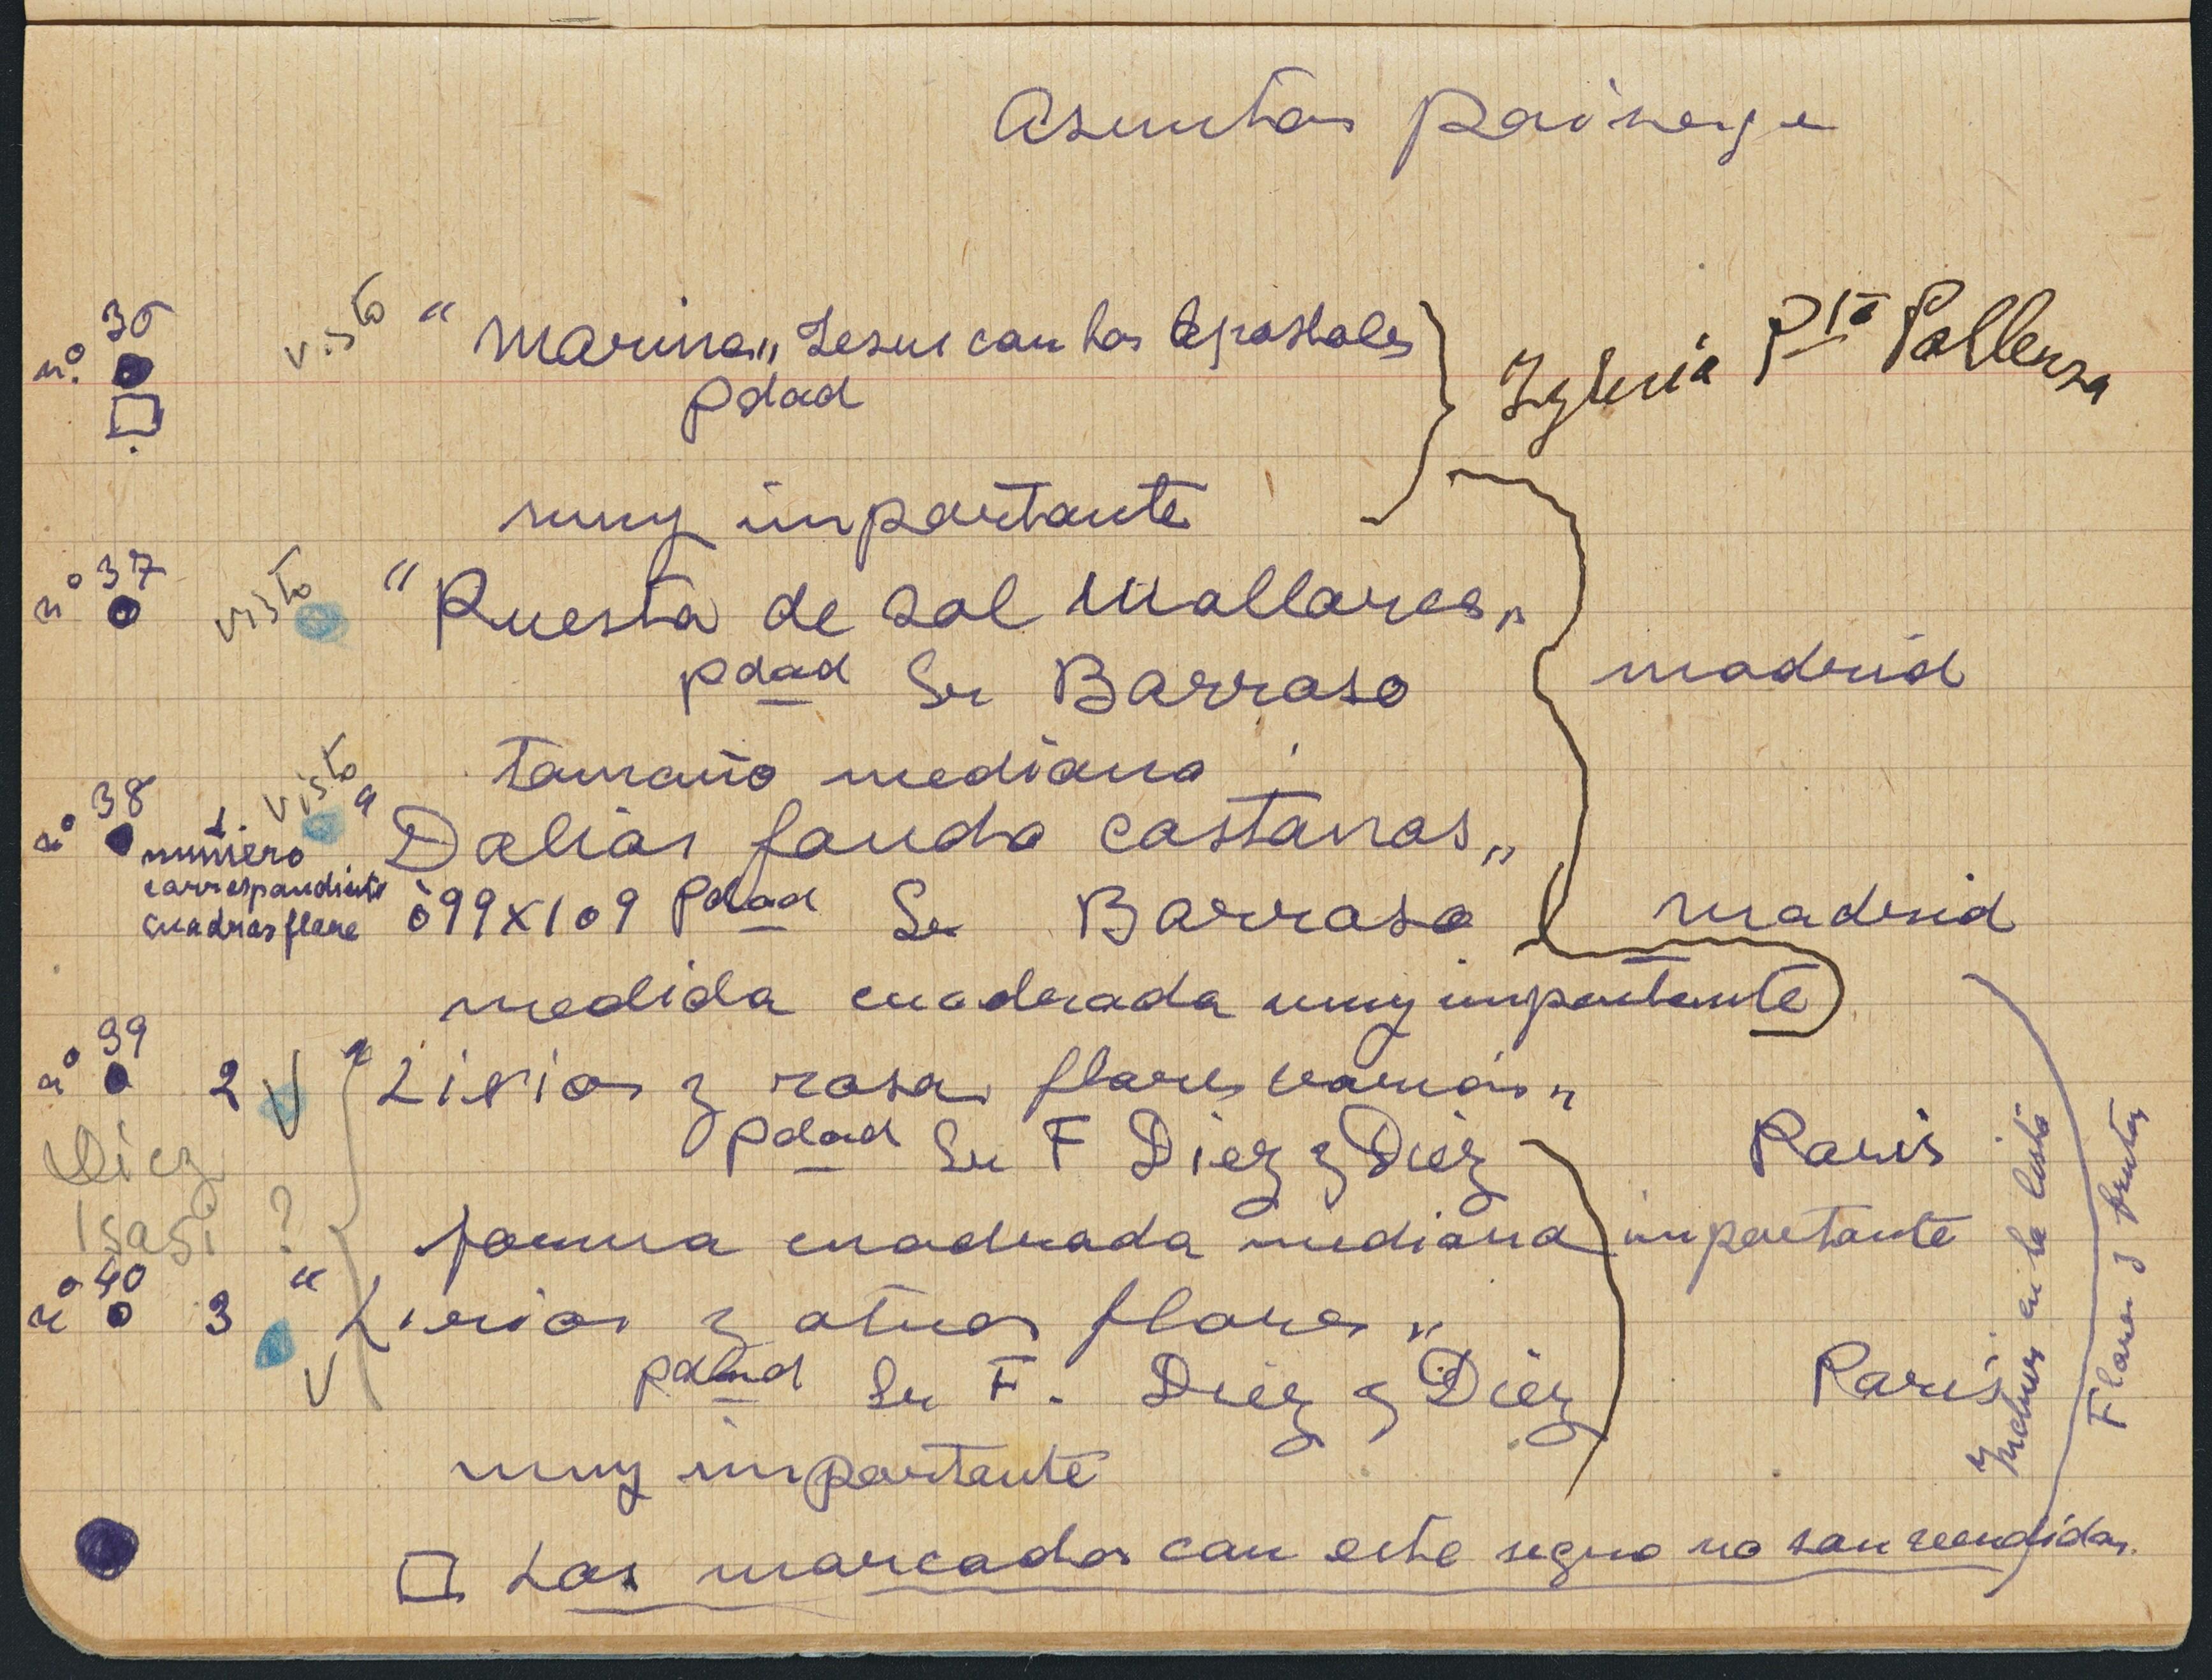 Asuntos paisage
nº 36 visto "Marina„ Jesus con los Apostoles
pdad
Iglesia Pta Pollensa
muy importante
nº 37 visto "Puesta de sol Mallorca„
pdad Sr Barraso madrid
tamaño mediano
nº 38 visto "Dalias fondo castanas„
1.
numero
correspondiente
cuadros flore
099X109 pdad Sr Barraso madrid
medida cuadrada muy importante
nº 39 2 V "Lirios y rosas flores varias„
pdad Sr F Diez y Diez Paris
Diez
Isasi ?
forma cuadrada mediana importante
nº 40 3 V "Lirios y otras flores„
pdad Sr F. Diez y Diez Paris
muy importante
Incluir en la lista
Flores y frutas
□ Los marcados con este segno no son vendidos.